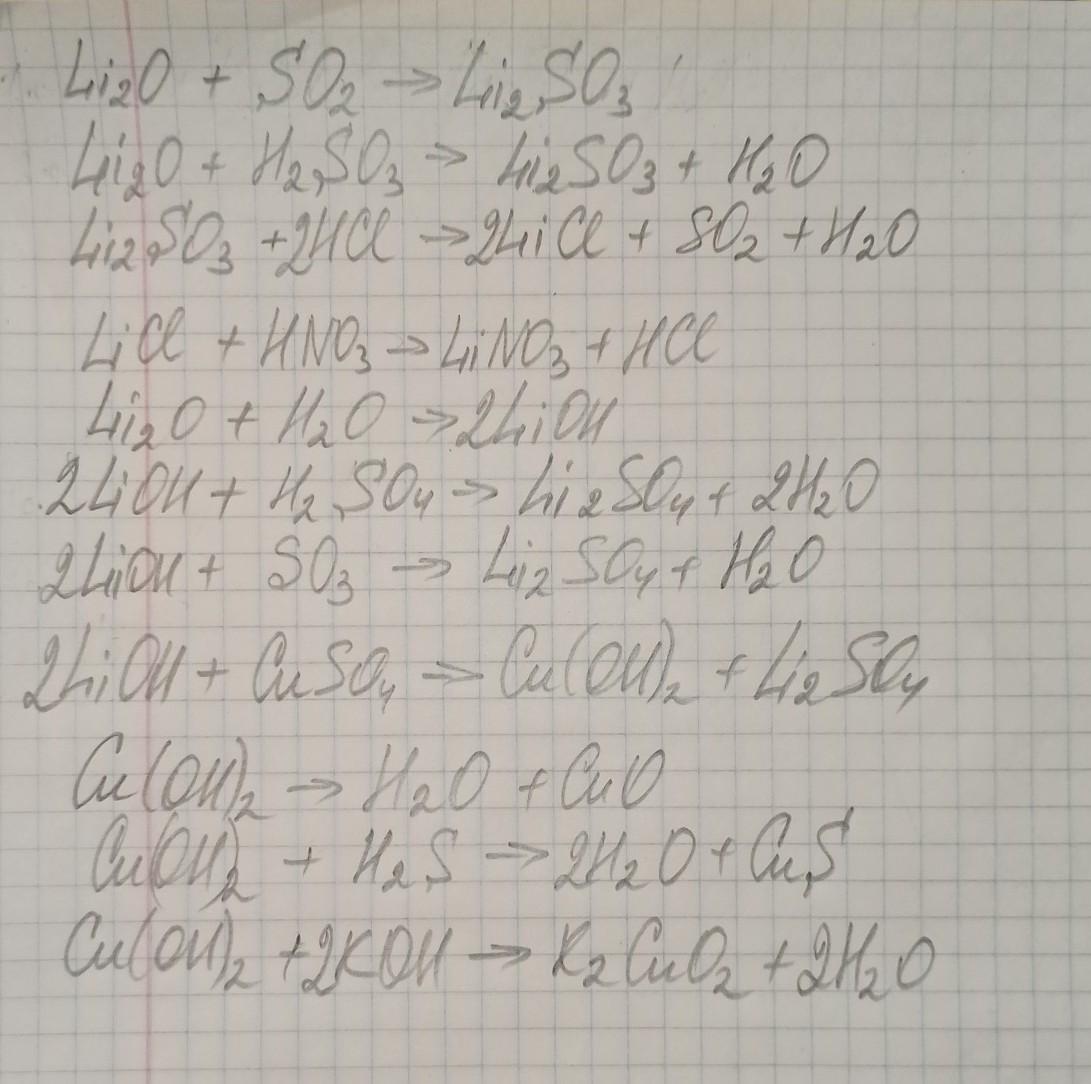 Li₂O + SO₂ → Li₂SO₃
Li₂O + H₂SO₃ → Li₂SO₃ + H₂O
Li₂SO₃ + 2HCl → 2LiCl + SO₂ + H₂O
LiCl + HNO₃ → LiNO₃ + HCl
Li₂O + H₂O → 2LiOH
2LiOH + H₂SO₄ → Li₂SO₄ + 2H₂O
2LiOH + SO₃ → Li₂SO₄ + H₂O
2LiOH + CuSO₄ → Cu(OH)₂ + Li₂SO₄
Cu(OH)₂ → H₂O + CuO
Cu(OH)₂ + H₂S → 2H₂O + CuS
Cu(OH)₂ + 2KOH → K₂CuO₂ + 2H₂O